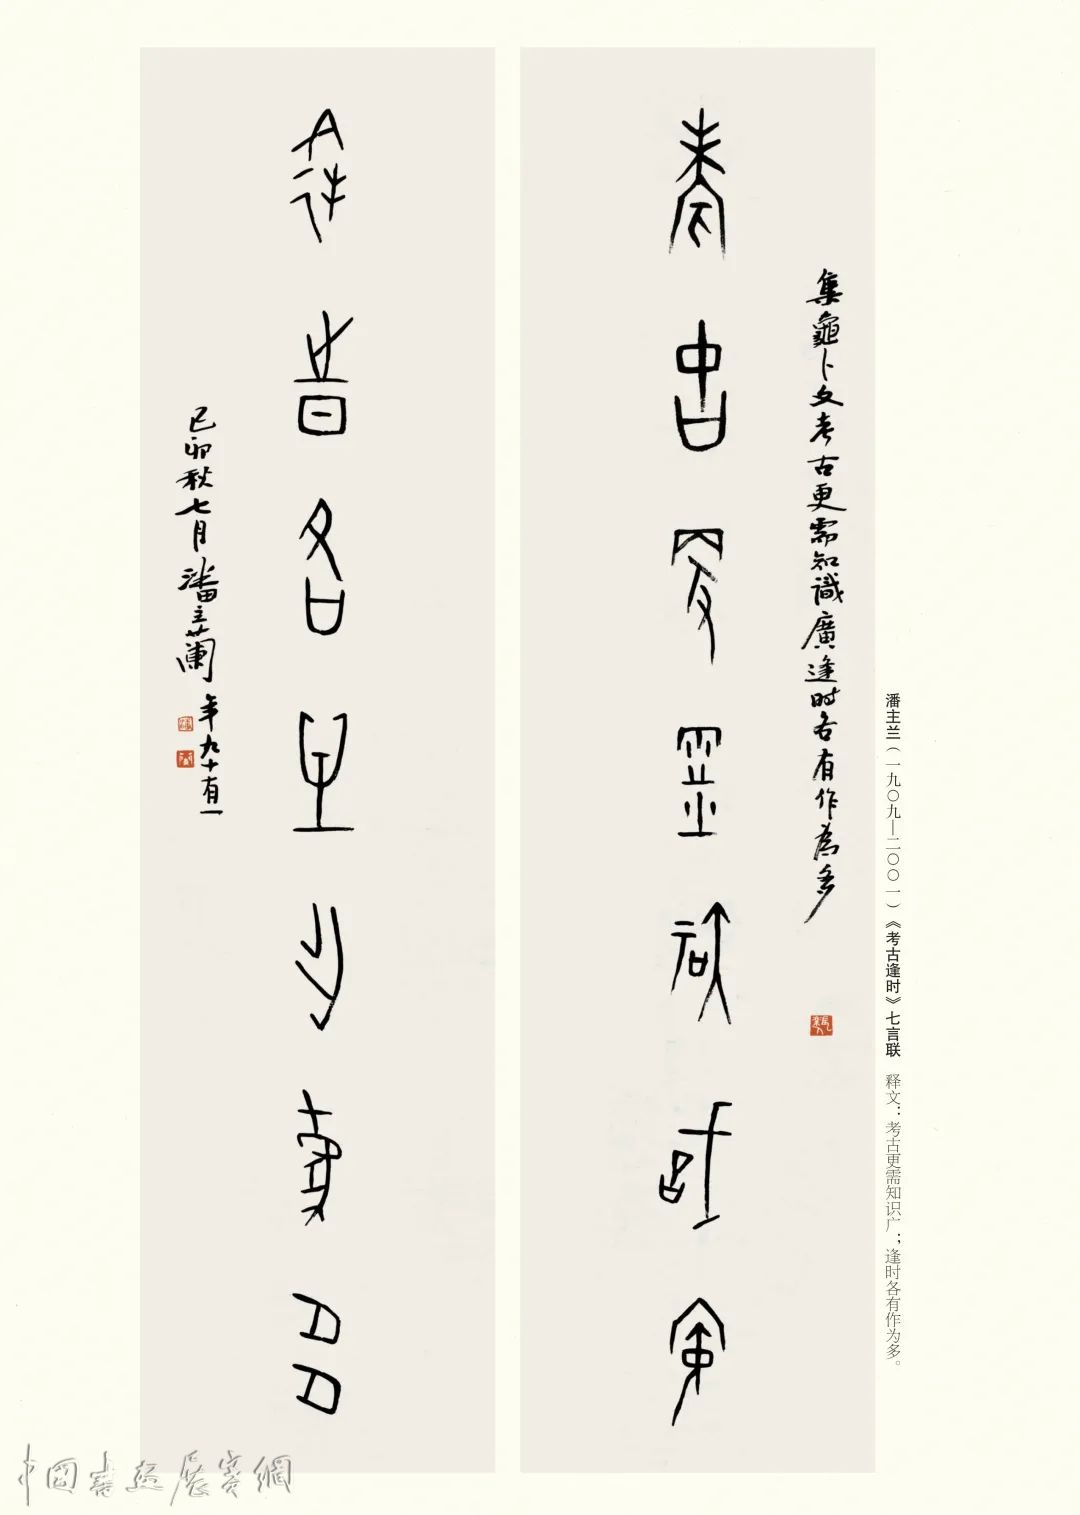 潘主兰（一九〇九—二〇〇一）《考古逢时》七言联　释文：考古更需知识广；逢时各有作为多。
集龜卜文考古更需知識廣逢时各有作為多
考古更需知識廣
逢時各有作為多
己卯秋七月潘主蘭
年九十有一
中國書画展賽網